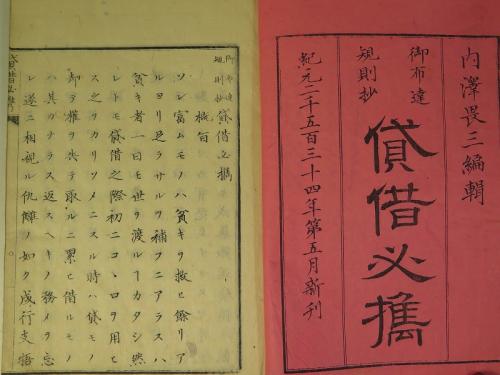 内澤畏三編輯
御布達
規則抄
貸借必携
紀元二千五百三十四年第五月新刊
御布達
規則抄
貸借必携
概旨
ソレ富ムモノハ貧キヲ救ヒ餘リア
ルヨリ足ラサルヲ補フニアラスハ
貧キ者一日モ世ヲ渡ルーカタシ然
レトモ貸借之際初ニコヽロヲ用ヒ
ス之ヲカリソメニスル時ハ貸モノ
却テ權ヲ失テ取ルニ累ヒ借ルモノ
ハ其カナラス返スヘキノ務メヲ忘
レ遂ニ相視ル仇讎ノ如ク成行支悟